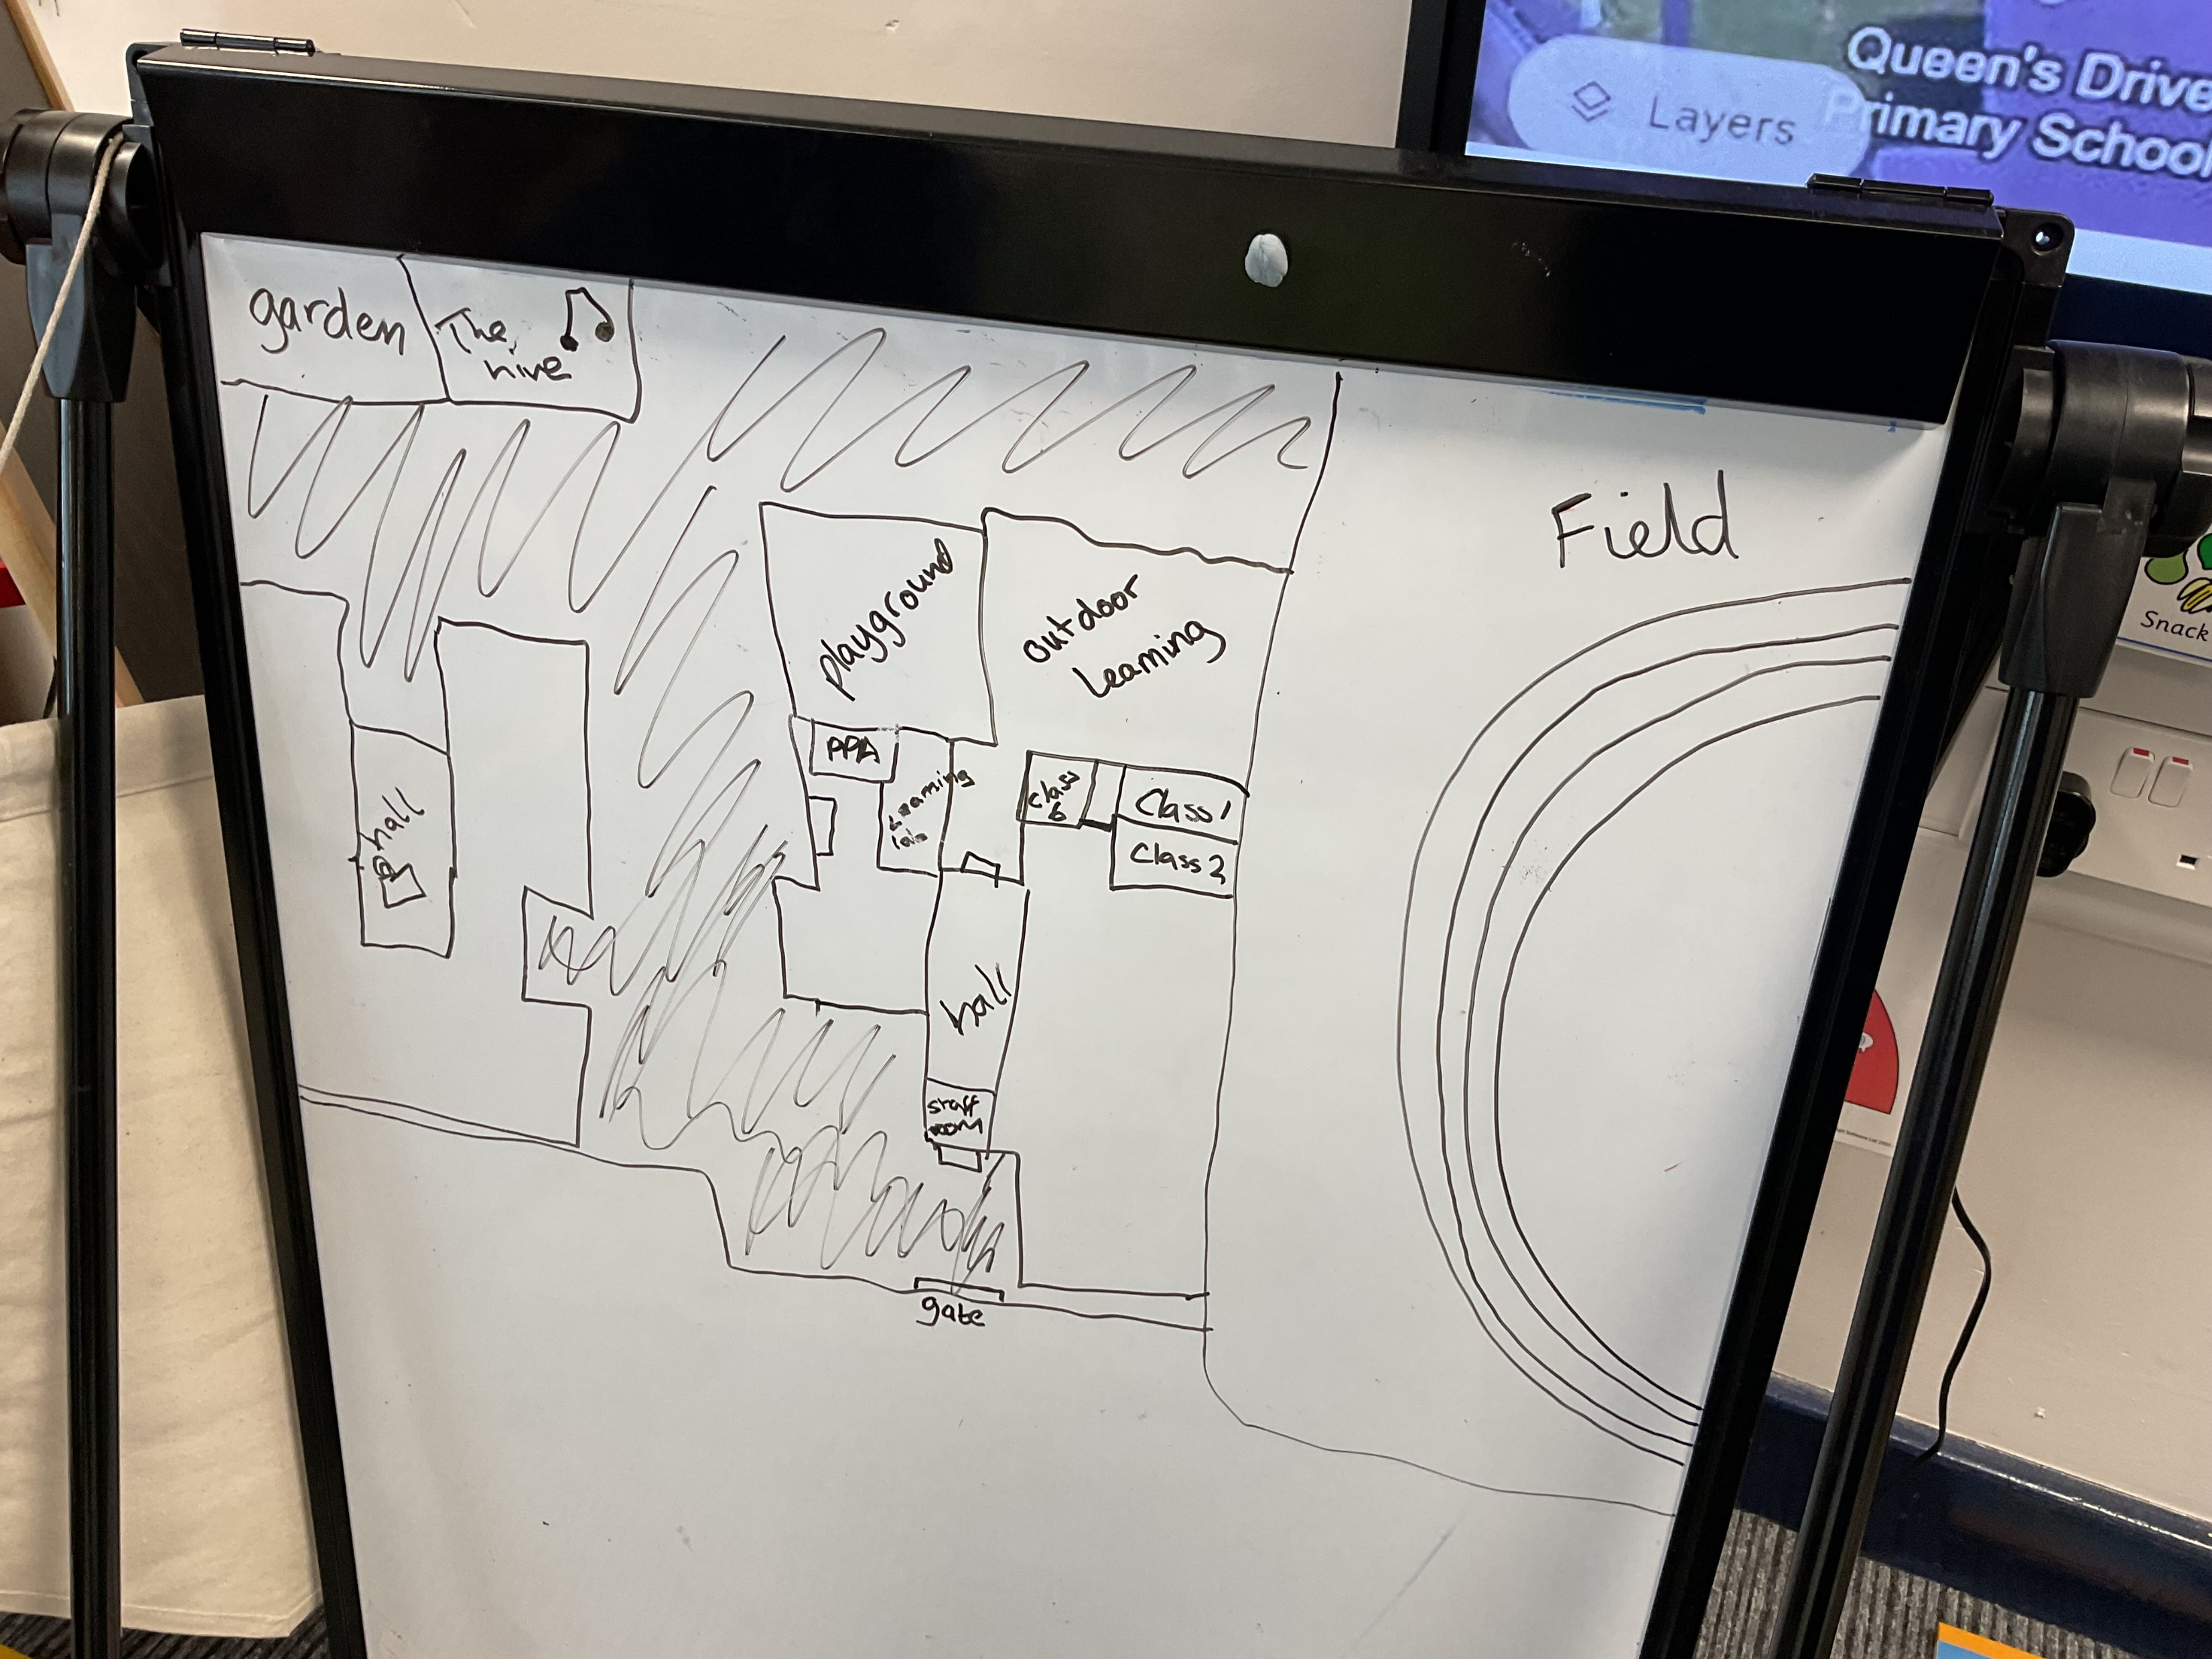 Queen's Drive
Primary School
Layers
Snack
garden
The
hive
Field
playground
outdoor
Learning
PPA
Learning
lab
Class
6
Class 1
Class 2
hall
hall
staff
room
gate